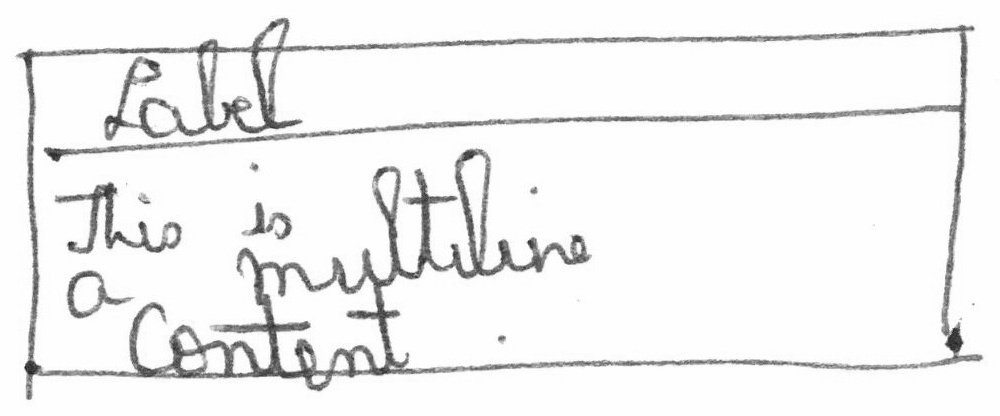 Label
This is
a multiline
Content.